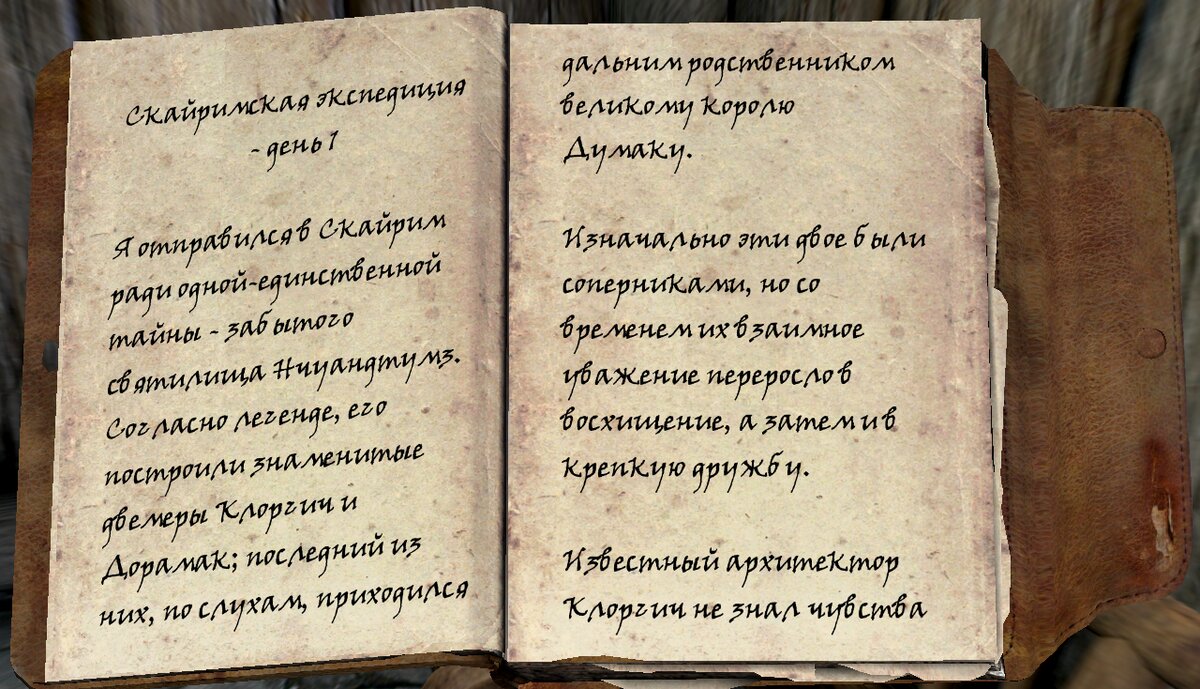 Скайримская экспедиция
- день 1
Я отправился в Скайрим
ради одной-единственной
тайны - забытого
святилища Нчуандтумз.
Согласно легенде, его
построили знаменитые
двемеры Клоргич и
Дорамак; последний из
них, по слухам, приходился
дальним родственником
великому королю
Думаку.
Изначально эти двое были
соперниками, но со
временем их взаимное
уважение переросло в
восхищение, а затем и в
крепкую дружбу.
Известный архитектор
Клоргич не знал чувства